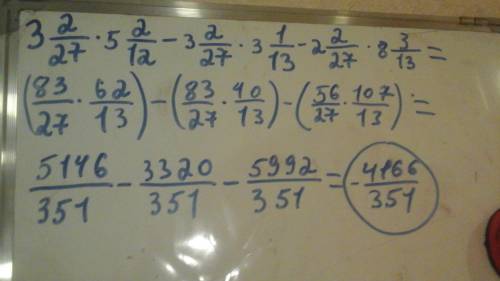 3 2/27 · 5 2/12 - 3 2/27 · 3 1/13 - 2 2/27 · 8 3/13 =
(83/27 · 62/13) - (83/27 · 40/13) - (56/27 · 107/13) =
5146/351 - 3320/351 - 5992/351 = -4166/351